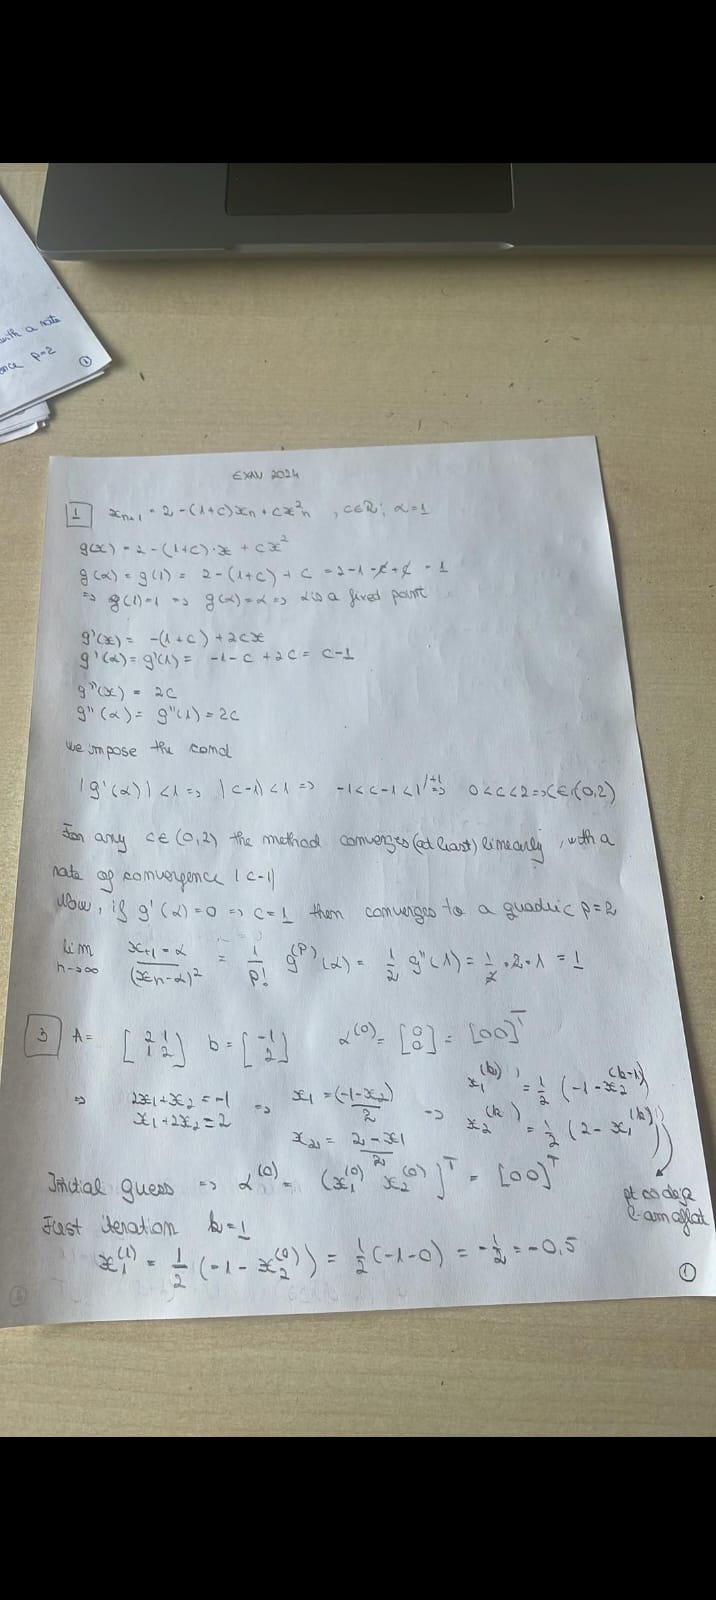 with a rate
ence p=2
①
EXAM 2024
1 x_{n+1} = 2 - (1+c)x_n + cx²_n , c∈ℝ; α=1
g(x) = 2 - (1+c)·x + cx²
g(α) = g(1) = 2 - (1+c) + c = 2-1-c+c = 1
=> g(1)=1 => g(α)=α => α is a fixed point
g'(x) = -(1+c) + 2cx
g'(α) = g'(1) = -1-c+2c = c-1
g''(x) = 2c
g''(α) = g''(1) = 2c
we impose the cond
|g'(α)| <1 => |c-1| <1 => -1<c-1<1 /+1 => 0<c<2 => c∈(0,2)
For any c∈(0,2) the method converges (at least) linearly, with a
rate of convergence |c-1|
Now, if g'(α)=0 => c=1 then converges to a quadric p=2
lim n→∞ x_{+1}-α / (x_n-α)² = 1/p! g^(p)(α) = 1/2 g''(1) = 1/2 · 2 · 1 = 1
3 A = [2 1; 1 2] b = [-1; 2] α^(0) = [0; 0] = [0 0]^T
=> 2x1+x2 = -1 => x1 = (-1-x2)/2 => x1^(k) = 1/2 (-1-x2^(k-1))
x1+2x2 = 2 x2 = 2-x1/2 x2^(k) = 1/2 (2-x1^(k))
Initial guess => α^(0) = (x1^(0) x2^(0)]^T = [0 0]^T
pt că deja
l-am aflat
First iteration k=1
x1^(1) = 1/2 (-1-x2^(0)) = 1/2 (-1-0) = -1/2 = -0,5
①